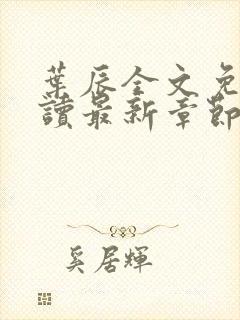 葉辰全文免
讀最新章節
奚居輝